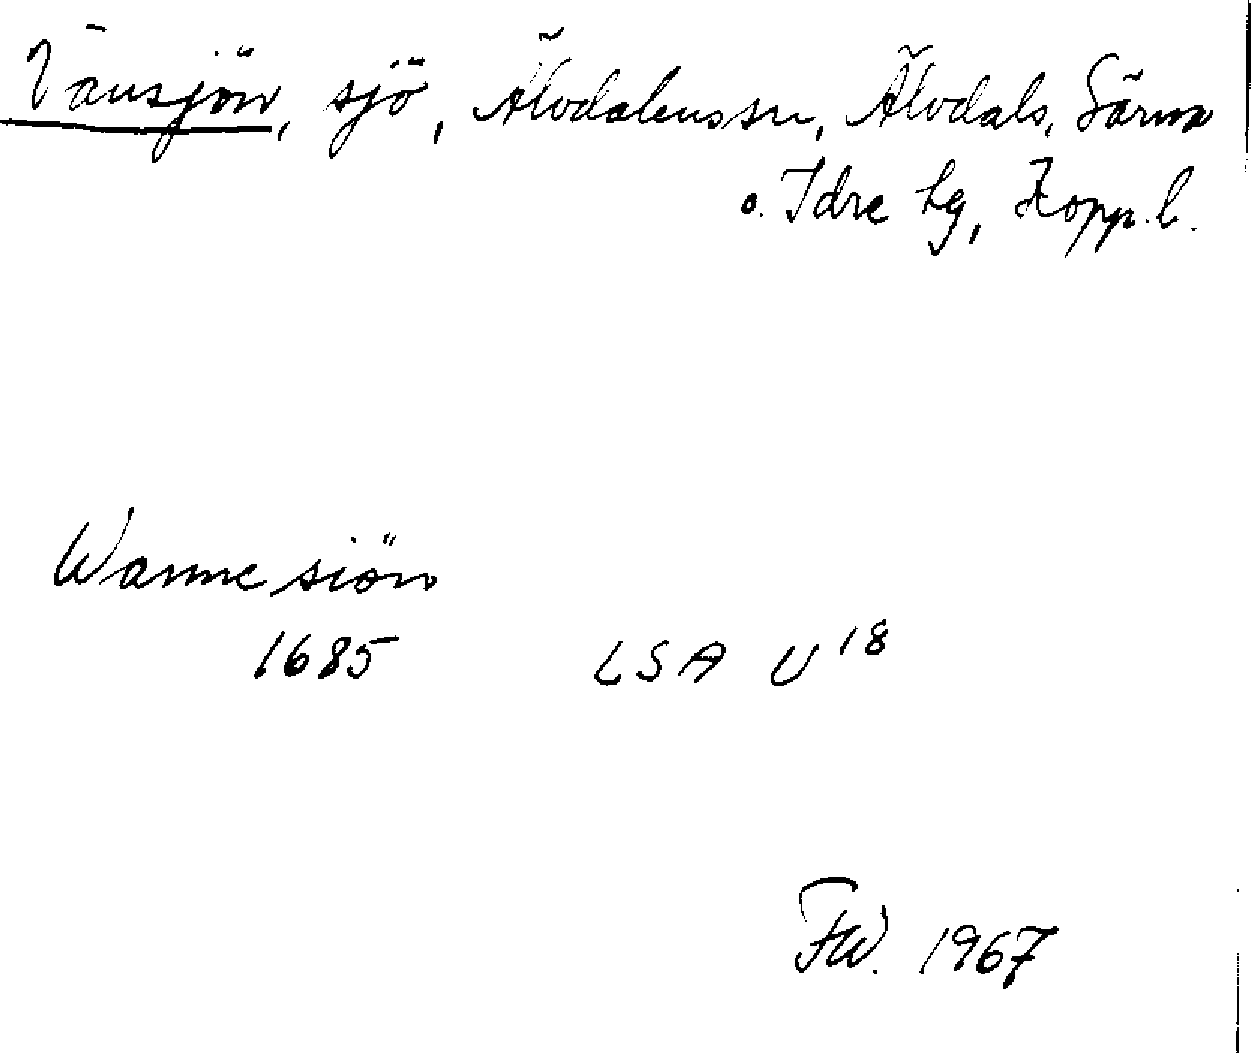 Vansjön, sjö, Älvdalens sn, Älvdals, Särna
o. Idre tg, Kopp. l.
Wanne siön
1685 LSA U 18
FW. 1967